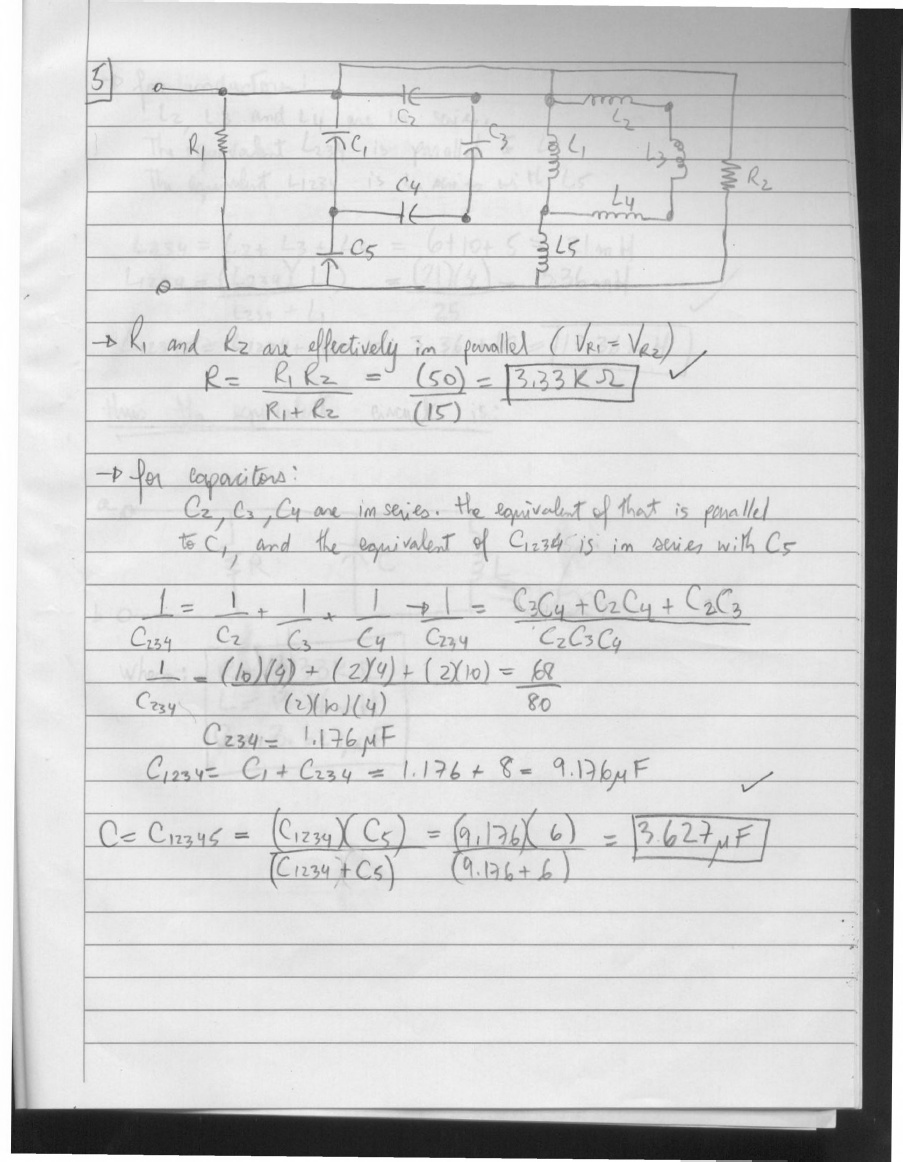 5
a
C2
L2
R1
C1
C3
L1
L3
R2
C4
L4
C5
L5
→ R1 and R2 are effectively in parallel (VR1 = VR2)
R = R1 R2 / R1 + R2 = (50) / (15) = 3.33 KΩ ✓
→ for capacitors:
C2, C3, C4 are in series. the equivalent of that is parallel
to C1, and the equivalent of C1234 is in series with C5
1/C234 = 1/C2 + 1/C3 + 1/C4 → 1/C234 = C3C4 + C2C4 + C2C3 / C2C3C4
1/C234 = (10)(4) + (2)(4) + (2)(10) / (2)(10)(4) = 68/80
C234 = 1.176 μF
C1234 = C1 + C234 = 1.176 + 8 = 9.176 μF ✓
C = C12345 = (C1234)(C5) / (C1234 + C5) = (9.176)(6) / (9.176 + 6) = 3.627 μF